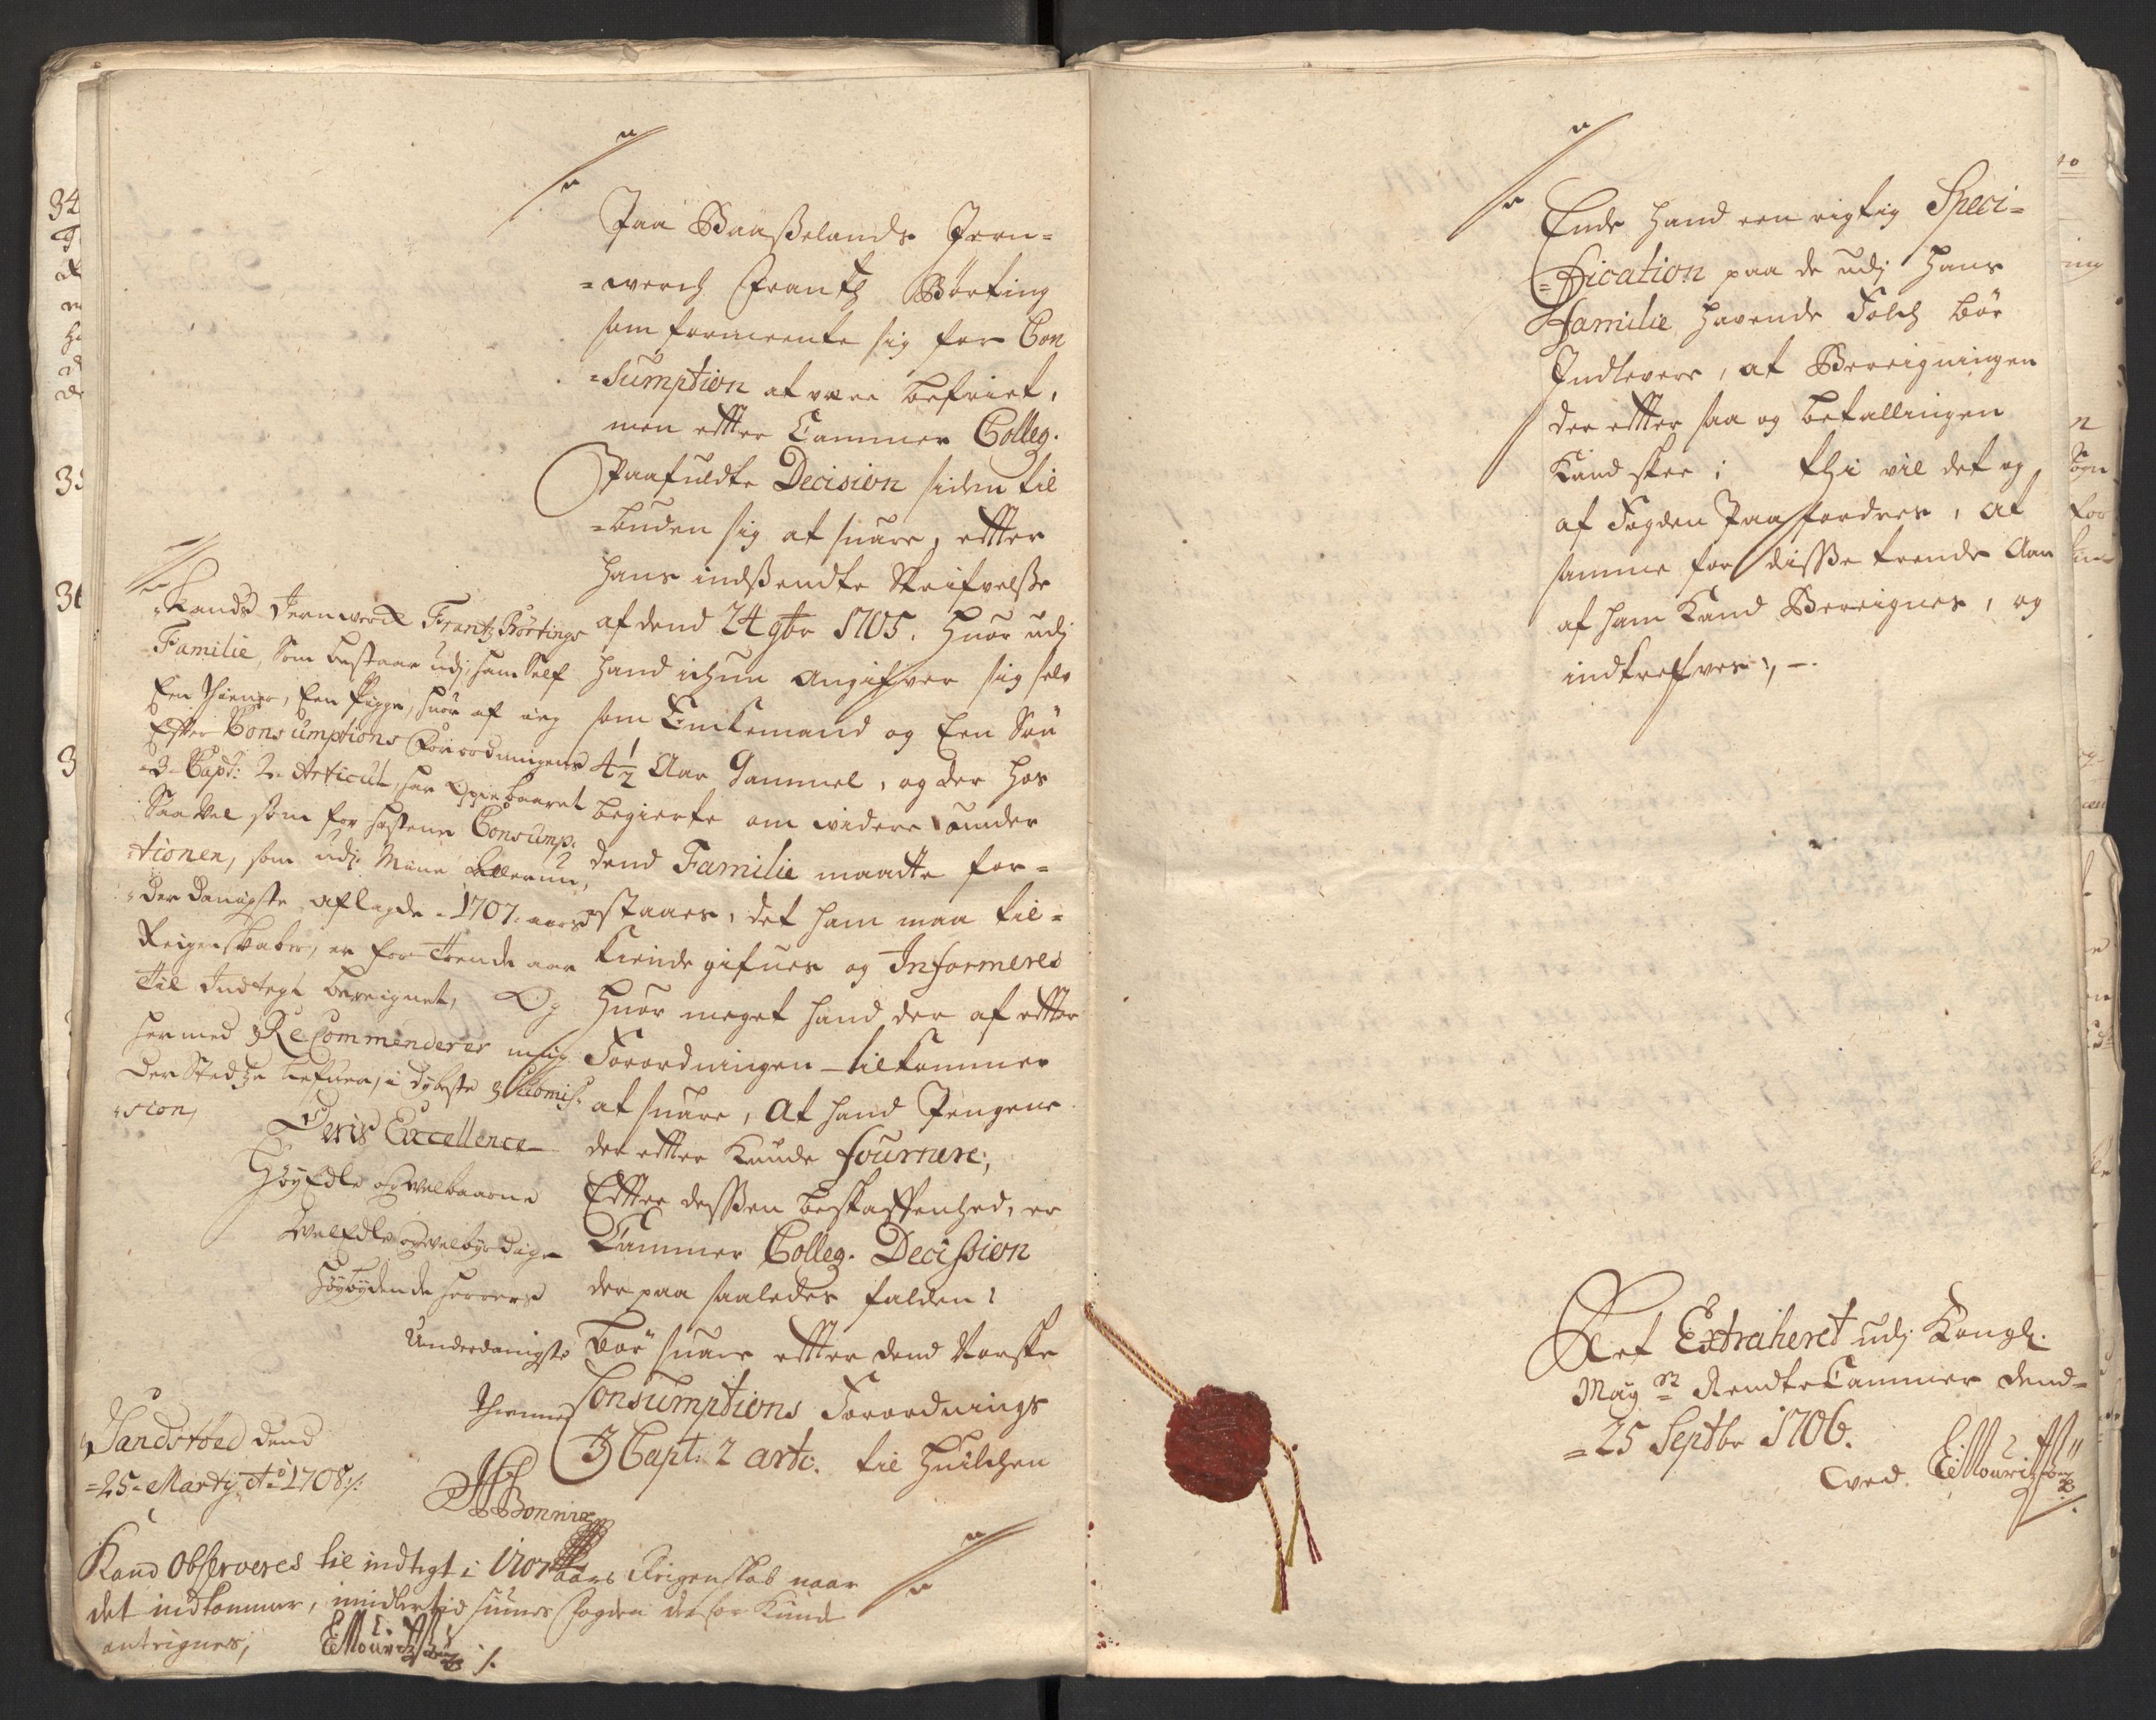 Paa Baaßelands Jern=
=werch Frantz Börting
som formeente sig for Con
=sumption at være befriet,
men effter Cammer Colleg.
Paafuldte Decision siden til
=buden sig at suare, effter
hans indsendte Skrifvelse
af dend 24 9br 1705. Huor udj
hand ichun angifver sig selv
som Enkemand og Een Søn
4 1/2 Aar Gammel, og der hos
begierte om videre under
dend Familie maatte for=
=staaes, det ham maa til=
kiende gifues og Informeres
Huor meget hand der af effter
Forordningen tilkommer
at suare, at hand Pengene
der effter Kunde fournere;
Effter dessen beskaffenhed, er
Cammer Colleg. Decission
der paa saaledes falden:
bør suare effter dend Norske
Consumptions Forordnings
3 Capt: 2 artc. til Huilchen
=lands Jernwerck Frantz Börtings
Familie, Som bestaar udj, ham Self
Een thiener, Een Pigge, huor af ieg
Efter Consumptions Forordningens
=3= Capt: 2 Articul, har Oppebaaret
Saa vel som for hestene Consump=
=tionen, som udj Mine
=derdanigste aflagde =1707= aars
Reigenskaber, er for Trende aar
til Indtegt bereignet, Og
hermed Recommenderes mig
der Stedze lefuer, i dybeste Submis=
=sion,
Deris Excellence
Høy Edle og velbaarne
Vel Edle og velbyrdige
høybydende herrers
Underdanigste
thienner
Sandstöed dend
=25= Marty Ao 1708 ./.
Bonnix
Kand Observeres til indtegt i 1707 aars Reigenskab naar
det indkommer, imidlertid suarer Fogden derfor Kunde
anteignes;
EMouritzen ./.
Ende hand een rigtig Speci=
=fication paa de udj hans
Familie havende Folch bør
Indlevere, at Bereigningen
der effter saa og betallingen
Kand skee; thi vil det og
af Fogden Paafordres, at
samme for disse trende Aar
af ham Kand Bereignes, og
indkrefves, -.
Ret Extraheret udj Kongl.
May tz RendteCammer dend
=25 Septbr 1706.
ved. EMouritzen